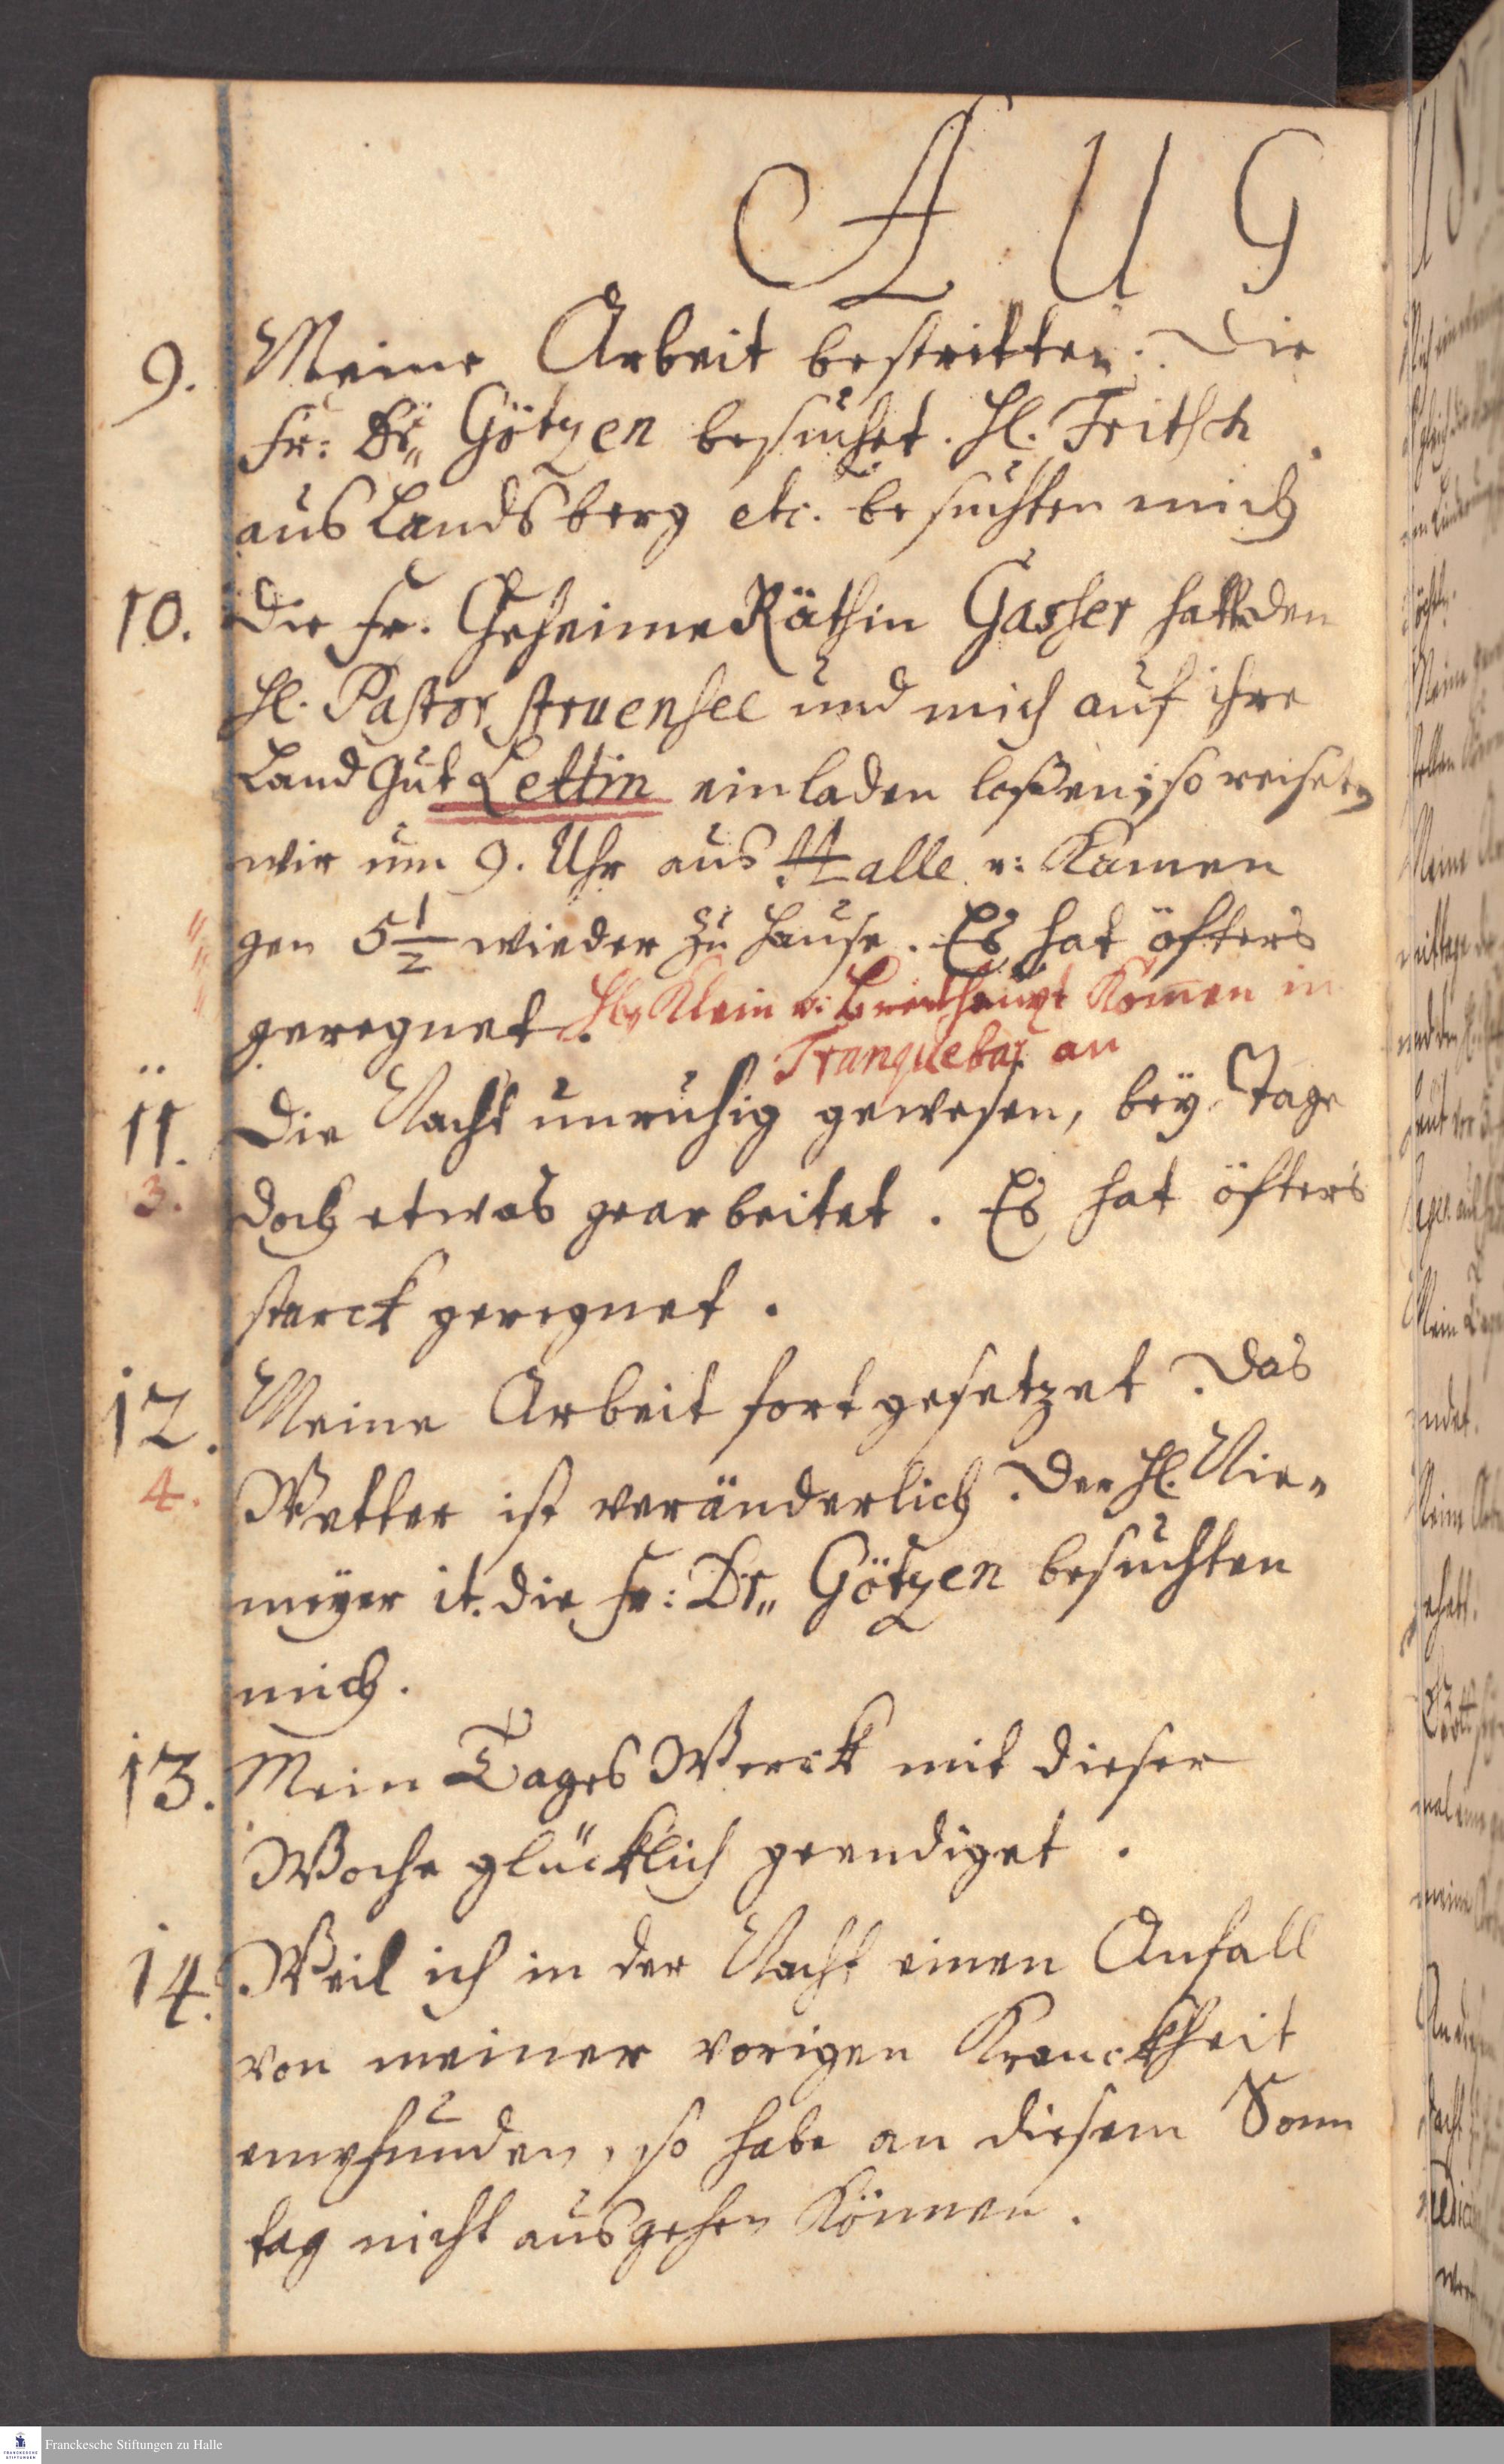 A U G
9. Meine Arbeit bestritten. Die
Fr: Dr„ Götzen besuchet. Hl. Fritsch
aus Landsberg etc. besuchten mich
10. Die Fr. Geheime Räthin Gasser hatte den
Hl. Pastor Struensee und mich auf ihre
Land Gut Lettin einladen laßen; so reiseten
wir um 9. Uhr aus Halle u: kamen
gen 5 1/2 wieder zu Hause. Es hat öfters
geregnet. Hl. Klein u: Breithaupt komen in
Tranquebar an
11. Die Nacht unruhig gewesen, bey Tage
3. doch etwas gearbeitet. Es hat öfters
starck geregnet.
12. Meine Arbeit fortgesetzet. Das
4. Wetter ist veränderlich. Der Hl. Nie-
meyer it. die Fr: Dr„ Götzen besuchten
mich.
13. Mein Tages Werck mit dieser
Woche glücklich geendiget.
14. Weil ich in der Nacht einen Anfall
von meiner vorigen Kranckheit
empfunden, so habe an diesem Sonn
tag nicht ausgehen können.
Franckesche Stiftungen zu Halle